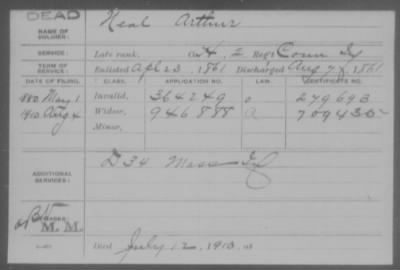 DEAD
NAME OF SOLDIER: Neal Arthur
SERVICE: Late rank, Co. H, 2 Reg't Conn Inf
TERM OF SERVICE: Enlisted Apl 23 1861 Discharged Aug 7, 1861
DATE OF FILING. CLASS. APPLICATION NO. LAW. CERTIFICATE NO.
1880 May 1 Invalid, 364249 279693
1910 Aug 4 Widow, 946888 a 709430
Minor,
ADDITIONAL SERVICES: D 34 Mass Inf
REMARKS:
M. M.
Died July 12, 1910, at